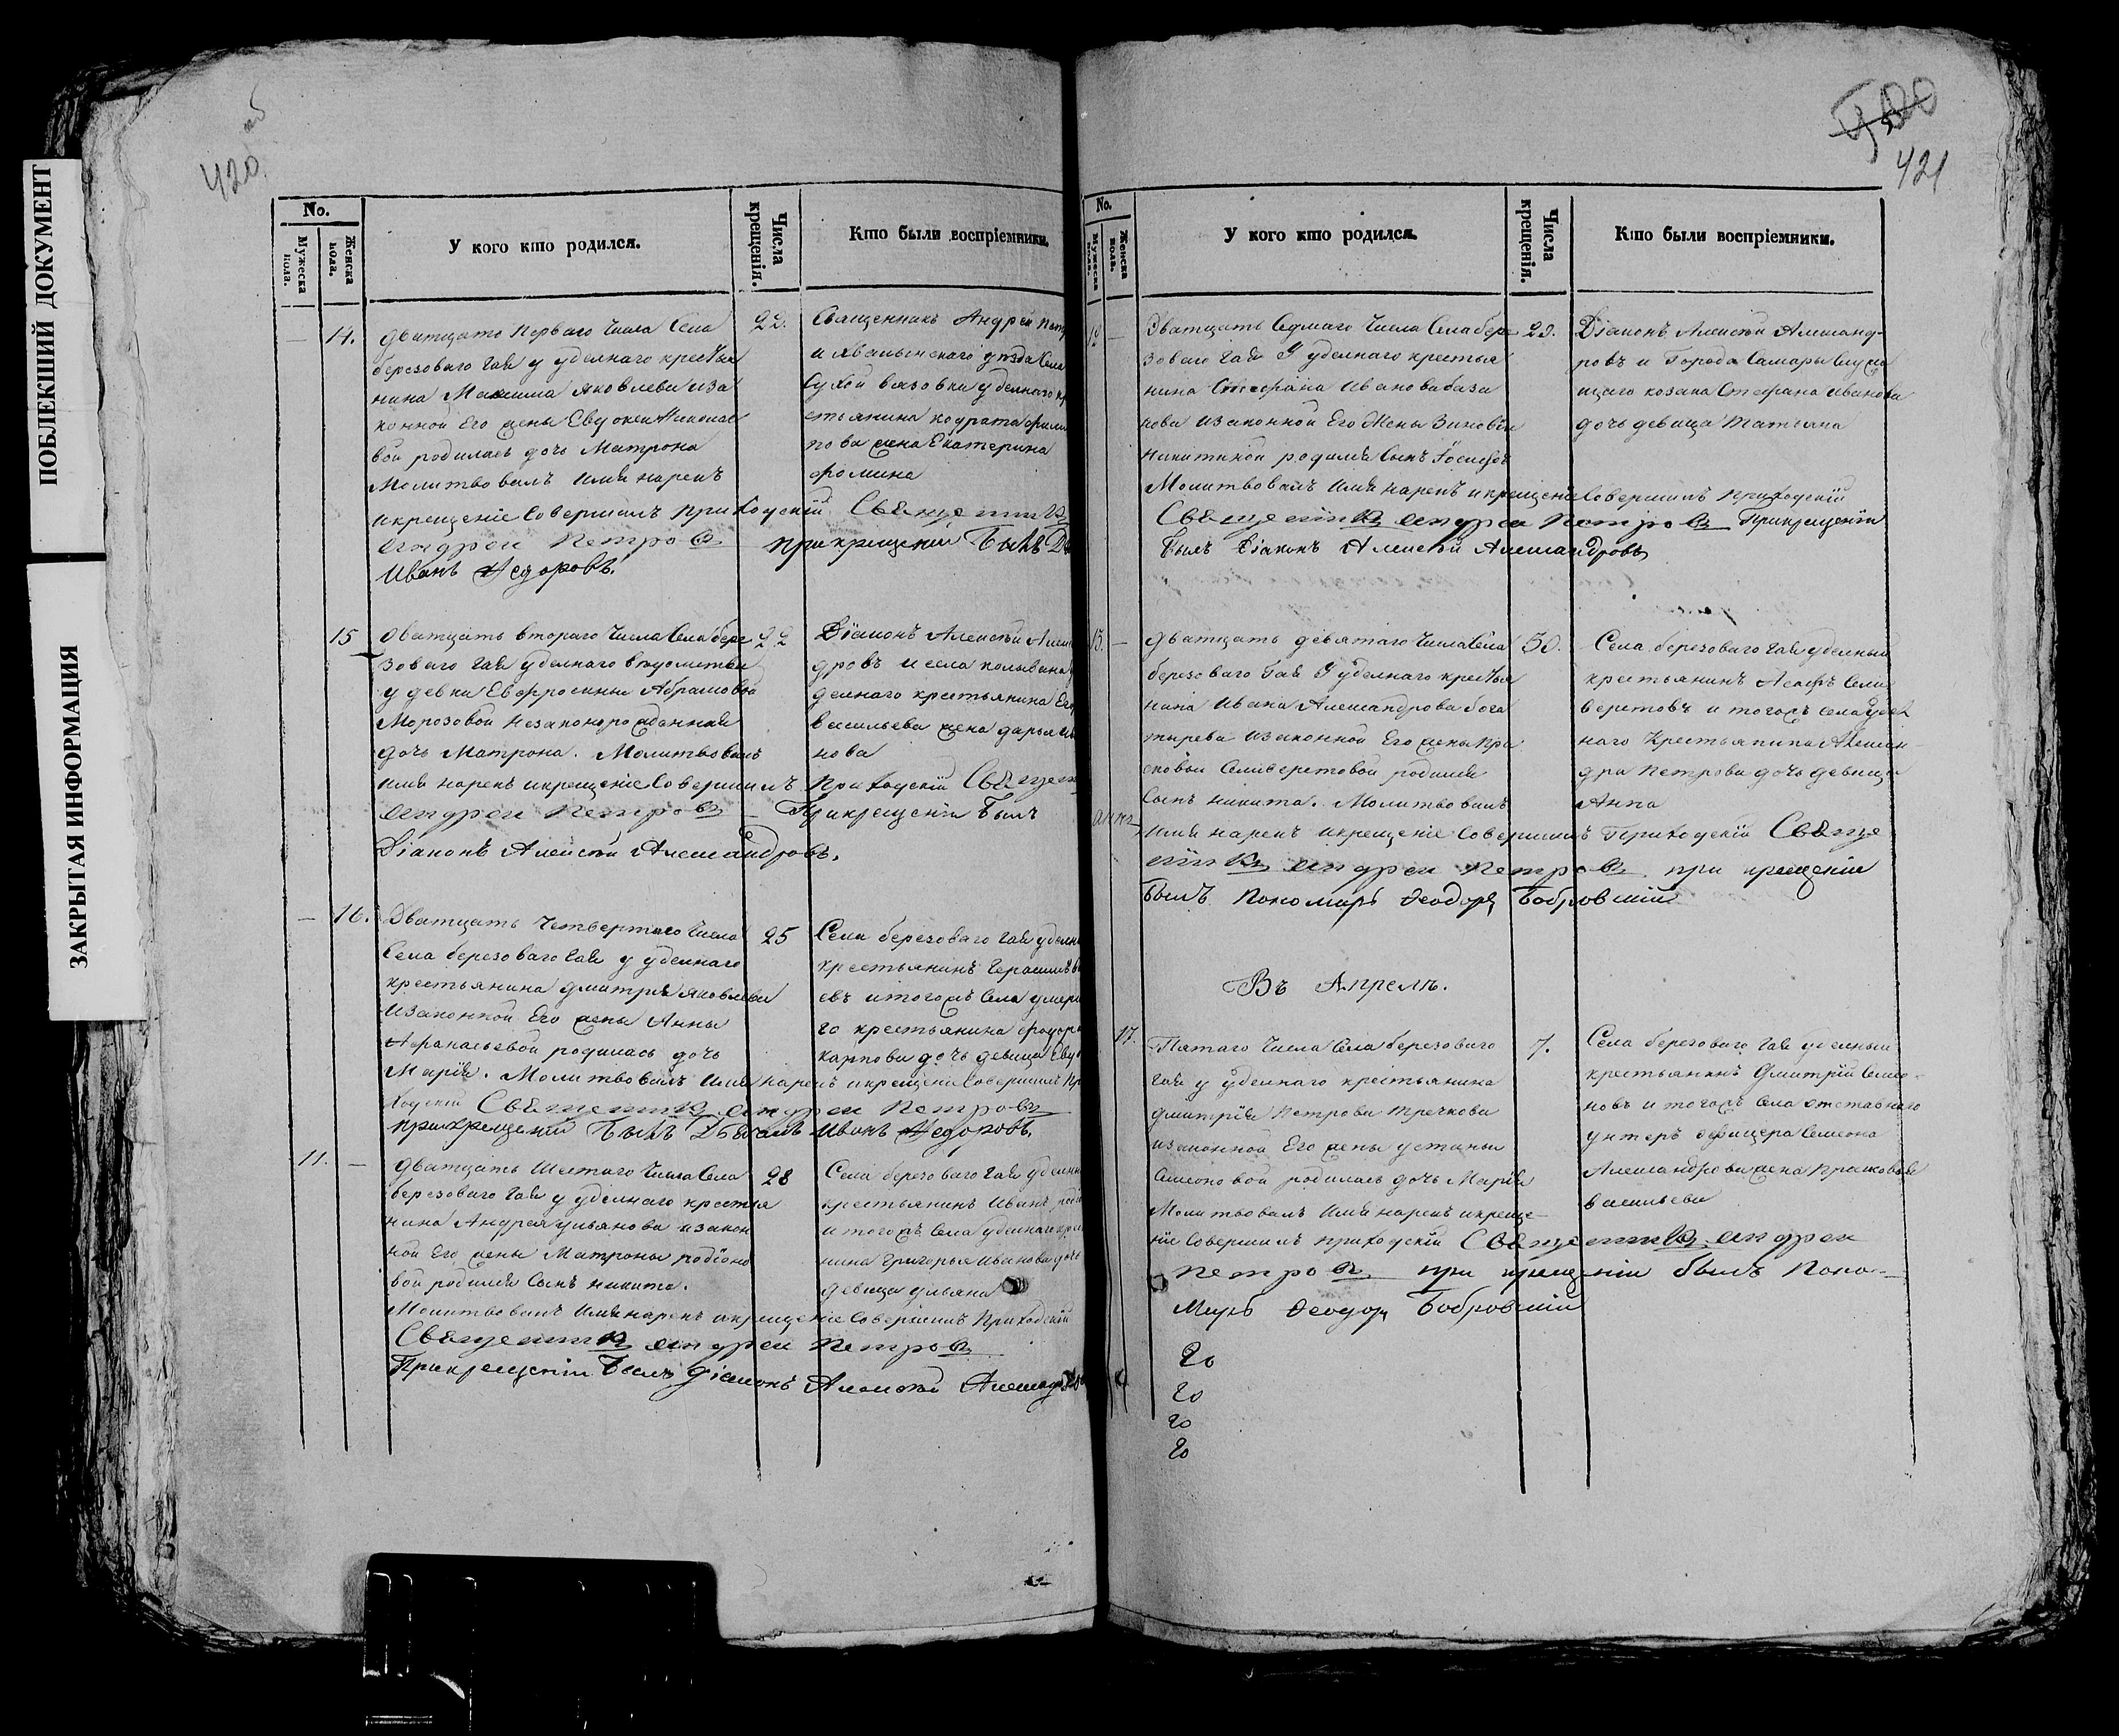 ПОБЛЕКШИЙ ДОКУМЕНТ
ЗАКРЫТАЯ ИНФОРМАЦИЯ
420 об
No.
Мужеска пола.
Женска пола.
У кого кто родился.
Числа крещенія.
Кто были воспріемники.
14.
дватцать перваго числа села
березоваго гая у уделнаго крестья
нина Максима Яковлева иза
конной его жены Евдокеи
вой родилась дочь Матрона
Молитвовалъ имя нарекъ
и крещеніе совершилъ приходскій Священникъ
андреи Петровъ при крещеніи былъ
Иванъ Федоровъ.
22.
Священникъ Андрей
и хвалынскаго уезда села
Сухой вязовки уделнаго
стьянина кодрата
пова жена Екатерина
фомина
15
дватцать втораго числа села бере
зоваго гая уделнаго ведомства
у девки Евфросиньи Абрамовой
Морозовой незаконорожденная
дочь Матрона. Молитвовалъ
имя нарекъ и крещеніе совершилъ приходскій
андреи Петровъ При крещеніи былъ
Діаконъ Алексѣй Александровъ.
22
Діаконъ Алексѣй
дровъ и села
делнаго крестьянина
васильева жена дарья
нова
16.
Дватцать четвертаго числа
Села березоваго гая у уделнаго
крестьянина дмитрия яковлева
изаконной его жены Анны
Афанасьевой родилась дочь
Марія. Молитвовалъ имя нарекъ и крещеніе совершилъ
ходскій Священникъ андреи Петровъ
при крещеніи былъ Дьяконъ Иванъ Федоровъ.
25
Села березоваго гая
крестьянинъ Герасимъ
евъ итогожъ села
го крестьянина
карпова дочь девица
11.
дватцать шестаго числа села
березоваго гая у уделнаго крестья
нина Андрея ульянова изакон
ной его жены Матроны родіоно
вой родился сынъ никита.
Молитвовалъ имя нарекъ и крещеніе совершилъ Приходскій
Священникъ андреи Петровъ
При крещеніи былъ діаконъ Алексѣй
28
Села березоваго гая
крестьянинъ Иванъ
итогожъ села уделнаго
нина григорья Иванова дочь
девица ульяна
421
No.
Мужеска пола.
Женска пола.
У кого кто родился.
Числа крещенія.
Кто были воспріемники.
12
Дватцать седмаго числа села бере
зоваго гая у уделнаго крестья
нина Стефана Иванова база
нова изаконной его жены Зиновеи
никитиной родился сынъ Іосифъ
Молитвовалъ имя нарекъ и крещеніе совершилъ приходскій
Священникъ андреи Петровъ При крещеніи
былъ Діаконъ Алексѣй Александровъ
29.
Діаконъ Алексѣй Александ-
ровъ и города Самары служа
щаго козака Стефана иванова
дочь девица Татьяна
13.
дватцать девятаго числа села
березоваго гая у уделнаго крестья
нина Ивана Александрова бога
тырева изаконной его жены пра
сковьи Селиверстовой родился
сынъ никита. Молитвовалъ
имя нарекъ и крещеніе совершилъ Приходскій Священ
никъ андреи Петровъ при крещеніи
былъ Пономарь Феодоръ Бобровскій
30.
Села березоваго гая уделный
крестьянинъ Сели
верстовъ и тогожъ села удел
наго крестьянина Алексан-
дра Петрова дочь девица
Анна
Въ Апрелѣ.
17.
Пятаго числа села березоваго
гая у уделнаго крестьянина
дмитрія Петрова
изаконной его жены устиньи
Семеновой родилась дочь Марія
Молитвовалъ имя нарекъ и креще-
ніе совершилъ приходскій Священникъ андреи
Петровъ при крещеніи былъ Поно-
марь Феодоръ Бобровскій
7.
Села березоваго гая уделный
крестьянинъ Дмитрій Семе-
новъ и тогожъ села отставнаго
унтеръ офицера Семена
Александрова жена прасковья
васильева